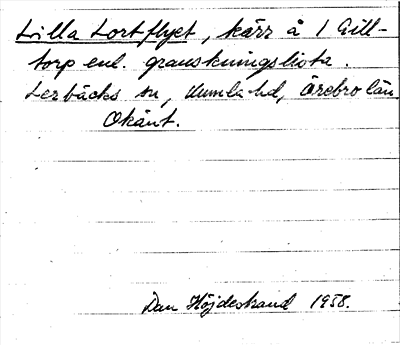 Lilla Lortflyet, kärr å 1 Gill-
torp enl. granskningslista.
Lerbäcks sn, Kumla hd, Örebro län
Okänt.
Dan Höjdestrand 1958.